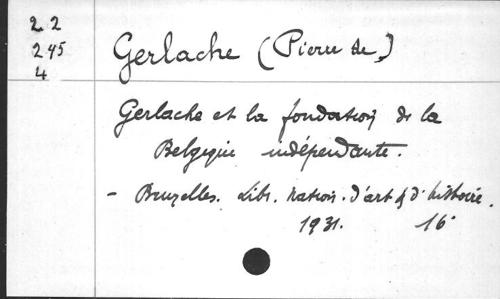 22
245
4
Gerlache (Pierre de)
Gerlache et la fondation de la
Belgique indépendante.
- Bruxelles. Libr. nation. d'art & d'histoire.
1931. 16°